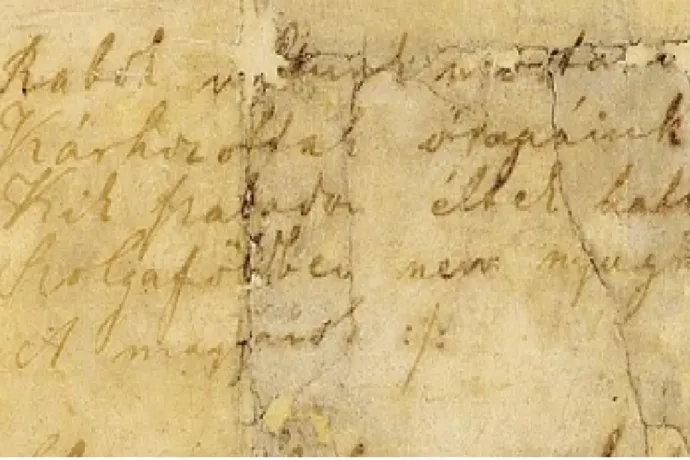 Rabok voltunk mostaná
Kárhozottak ősapáink
Kik szabadon éltek halt
Szolgaföldben nem nyugh
A magyarok :/: